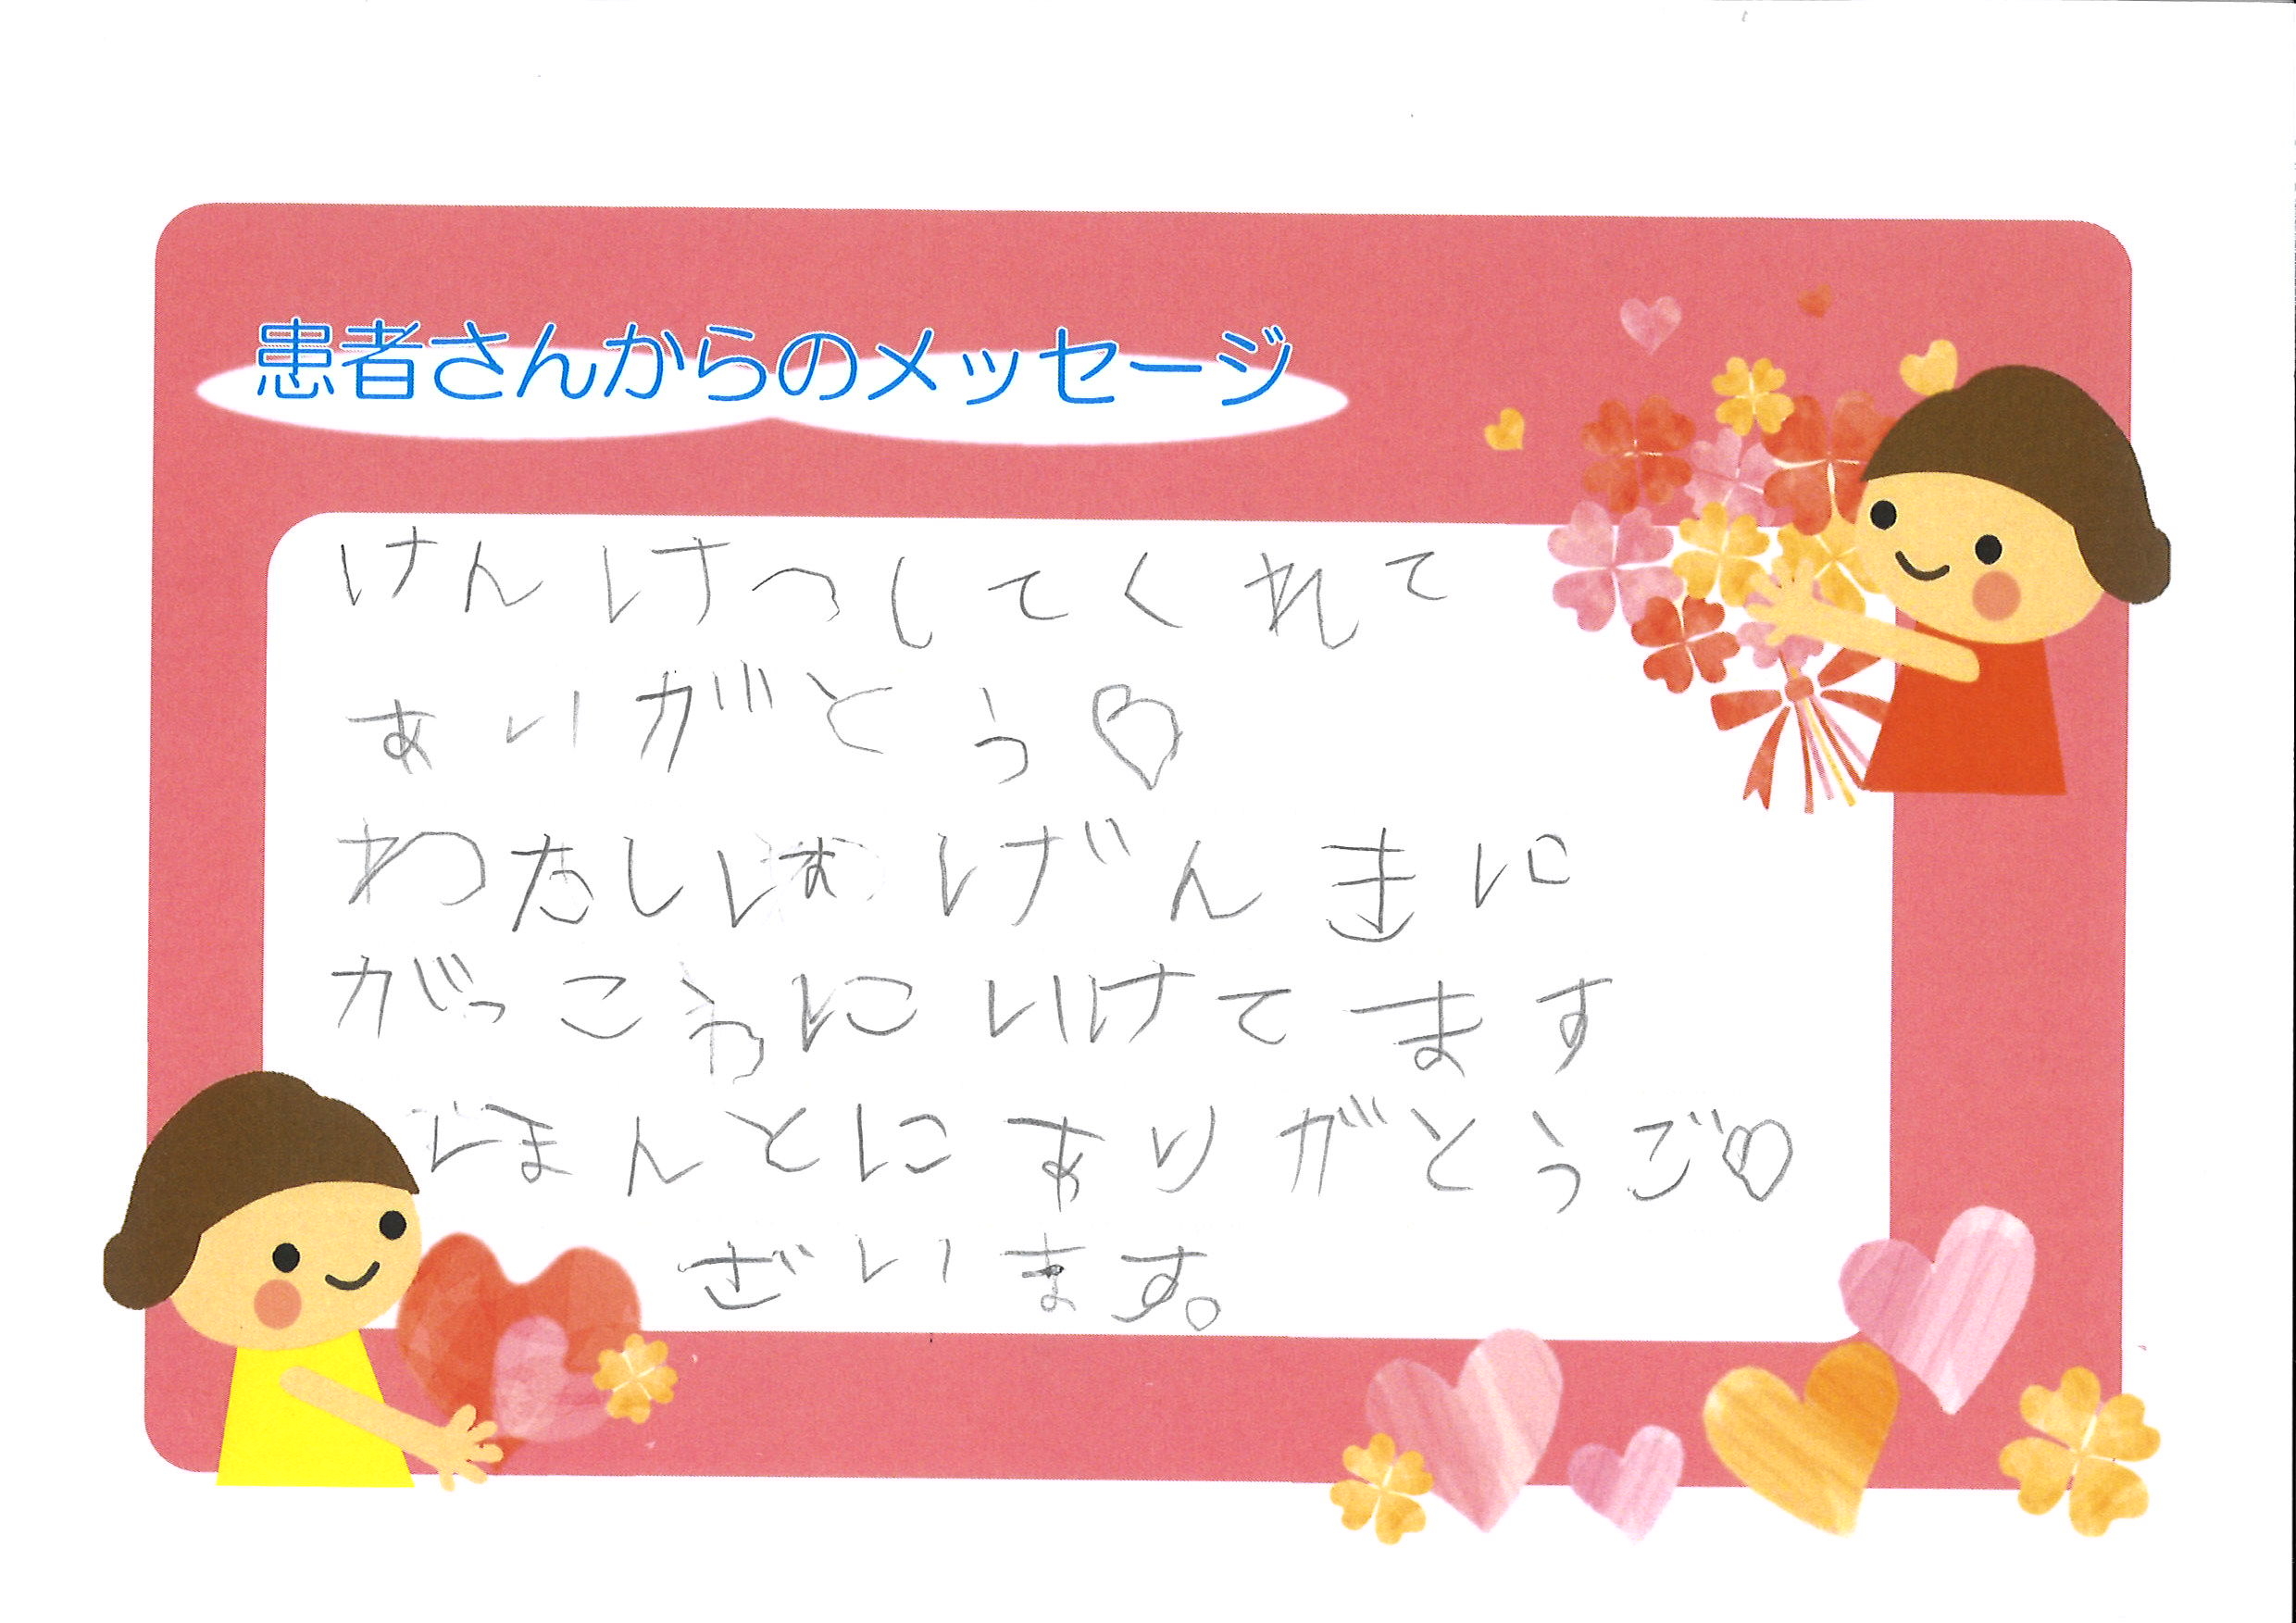 患者さんからのメッセージ
けんけつしてくれて
ありがとう♡
わたしは げんきに
がっこうにいけてます
ほんとにありがとうご♡
ざいます。